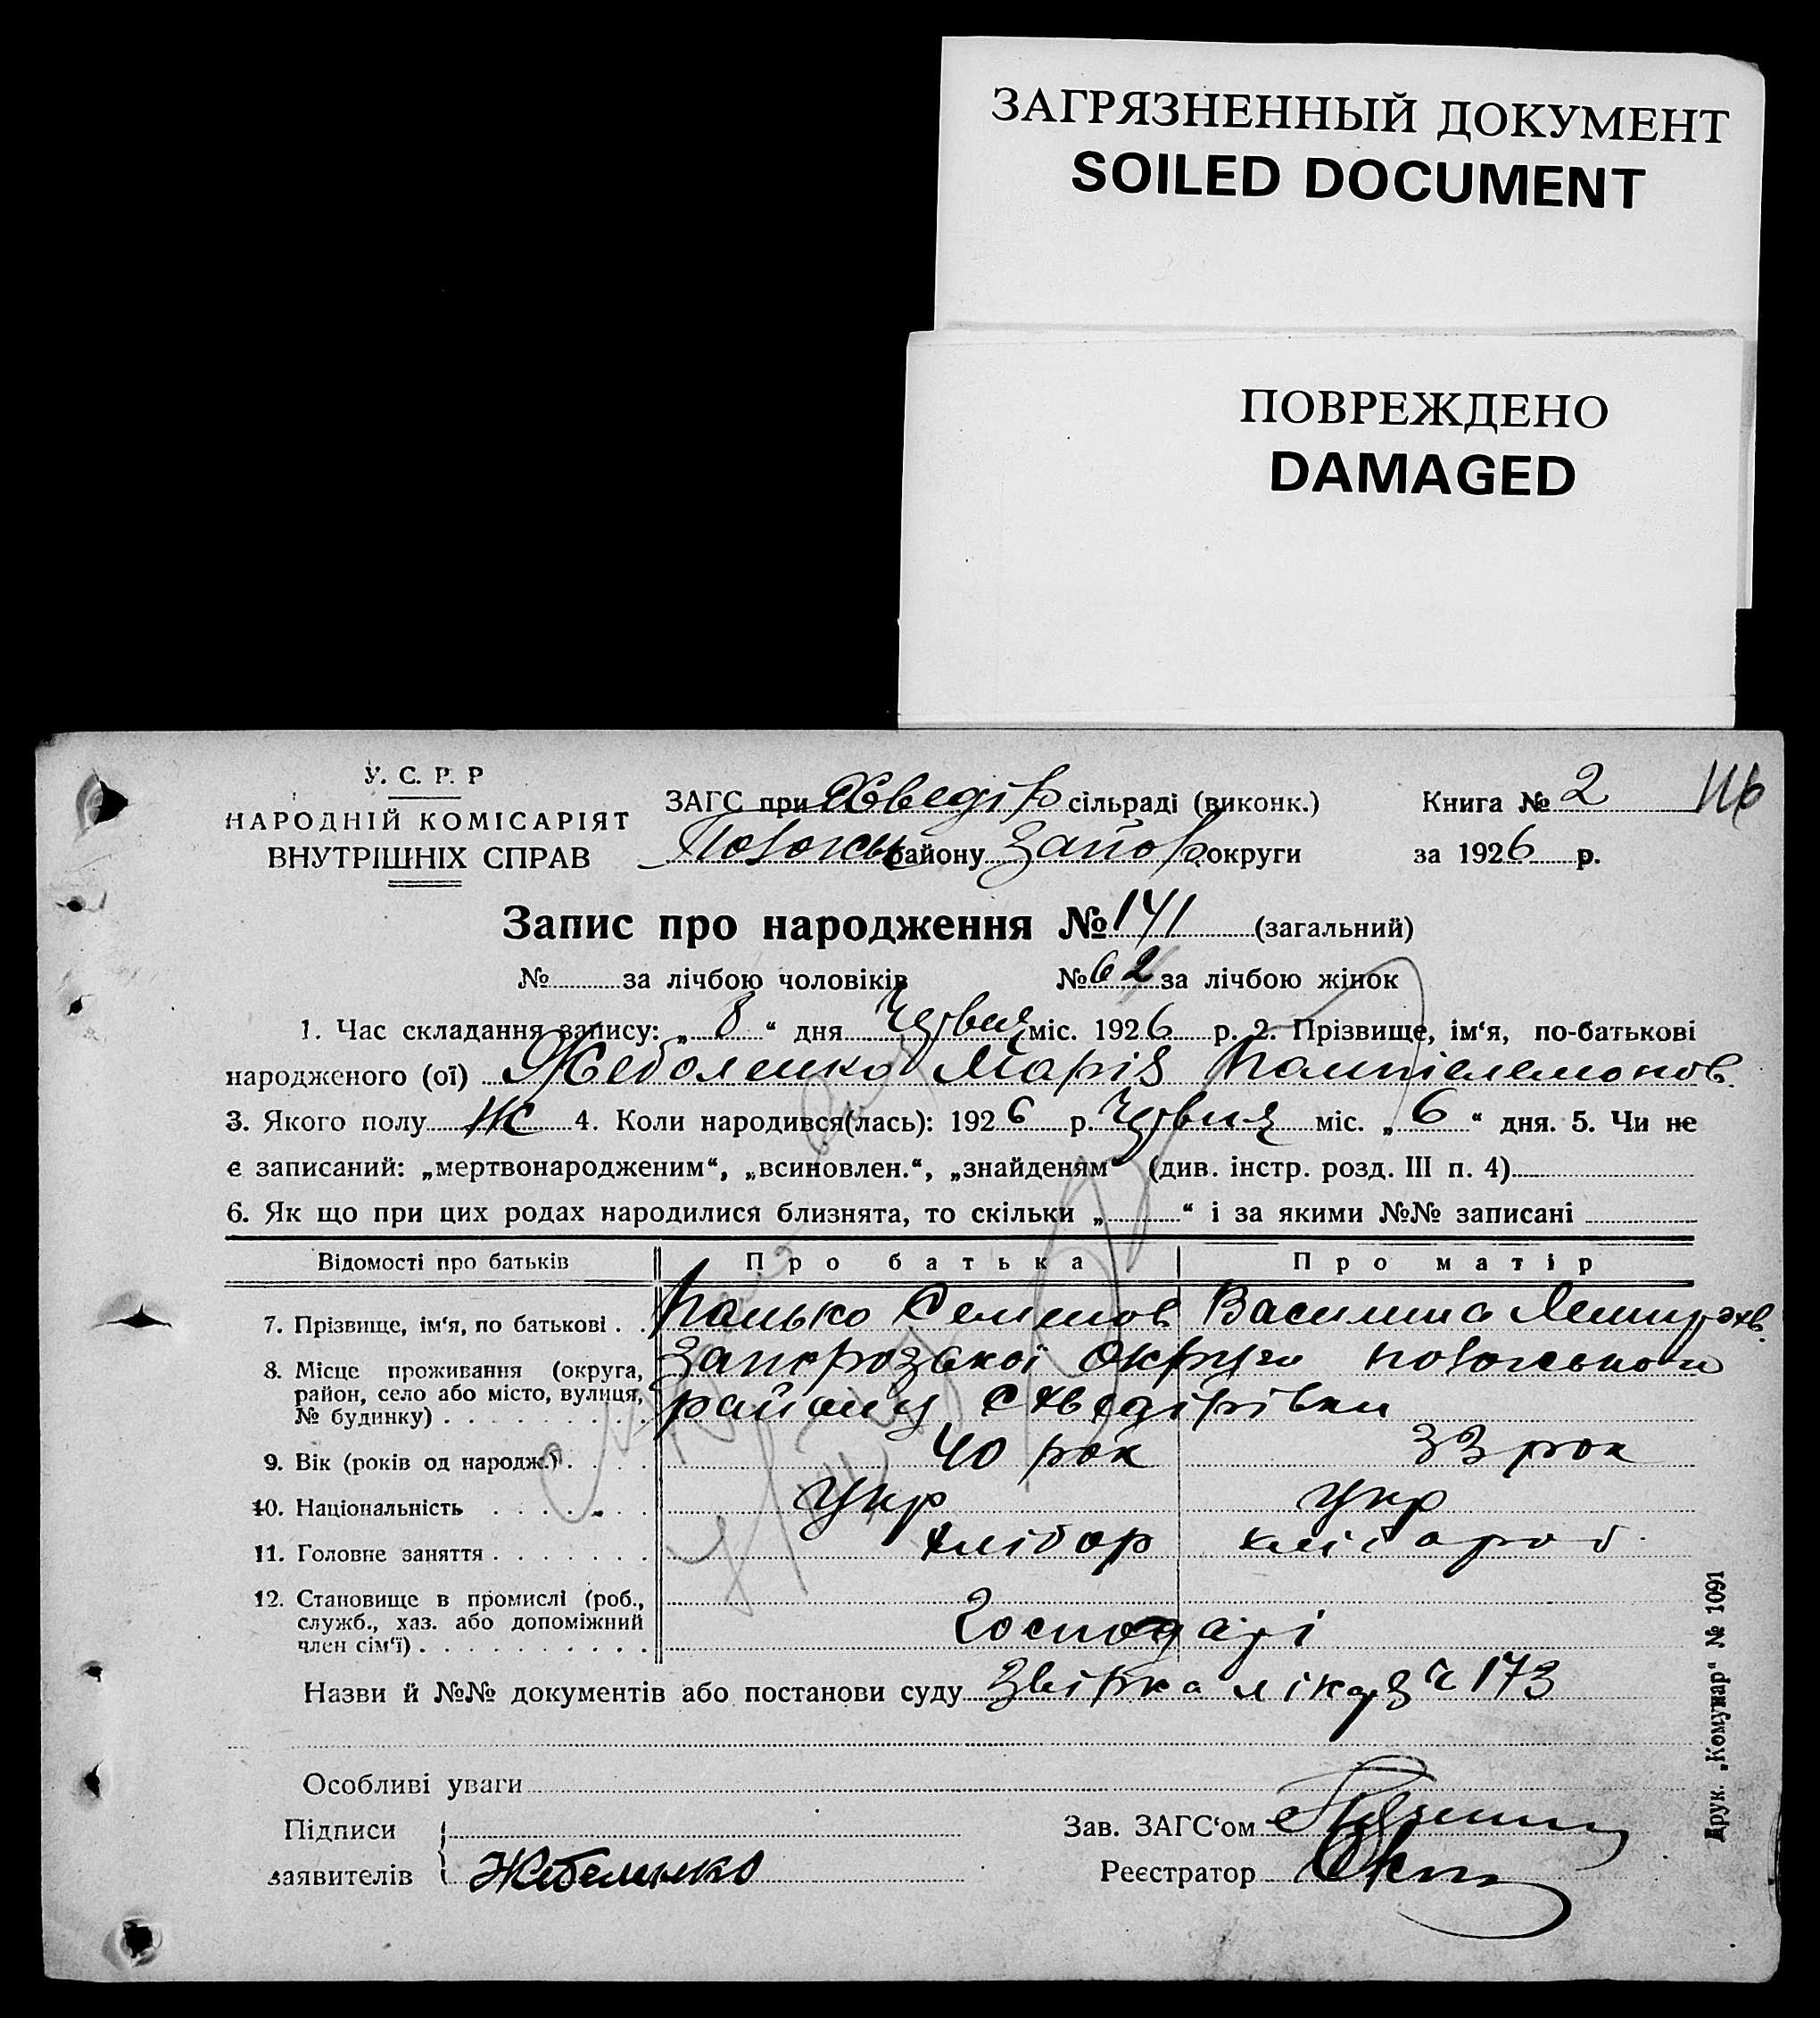 ЗАГРЯЗНЕННЫЙ ДОКУМЕНТ
SOILED DOCUMENT
ПОВРЕЖДЕНО
DAMAGED
У. С. Р. Р
НАРОДНІЙ КОМІСАРІЯТ
ВНУТРІШНІХ СПРАВ
ЗАГС при Схведір сільраді (виконк.)
Книга № 2
116
району Запор округи
за 1926 р.
Запис про народження № 141 (загальний)
№ за лічбою чоловіків № 62 за лічбою жінок
1. Час складання запису: „ 8 “ дня Червня міс. 1926 р. 2. Прізвище, ім‘я, по-батькові
народженого (ої) Жеболенко Марія
3. Якого полу Ж 4. Коли народився(лась): 1926 р. Червня міс. „ 6 “ дня. 5. Чи не
є записаний: „мертвонародженим“, „всиновлен.“, „знайденям“ (див. інстр. розд. III п. 4)
6. Як що при цих родах народилися близнята, то скільки „ “ і за якими №№ записані
Відомості про батьків Про батька Про матір
7. Прізвище, ім‘я, по батькові . . Панько Семенов Василина
8. Місце проживання (округа, район, село або місто, вулиця, № будинку) . . . . . . . . . Запорозької Округи
району Схведірівки
9. Вік (років од народж.) . . . . 40 рок 33 рок
10. Національність . . . . . . . Укр Укр
11. Головне заняття . . . . . . . хлібор хлібороб
12. Становище в промислі (роб., служб., хаз. або допоміжний член сім‘ї) . . . . . . . . . . Господарі
Назви й №№ документів або постанови суду лікаря ч 173
Особливі уваги
Підписи
заявителів Жебеленко
Зав. ЗАГС‘ом
Реєстратор
Друк. „Комунар“ № 1091